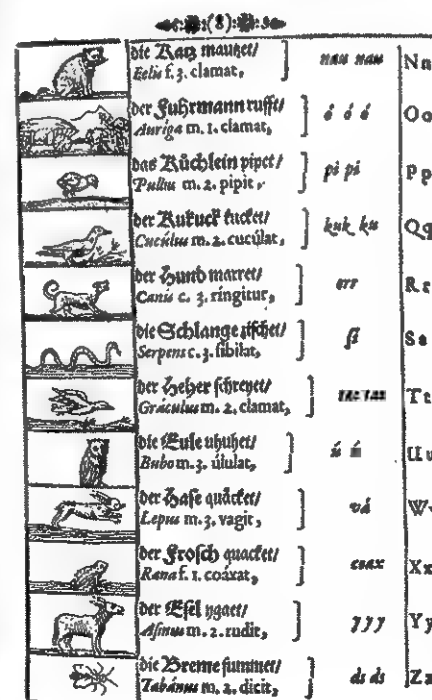 (8)
die Katz mauzet/
Felis f. 3. clamat,
nau nau
N n
der Fuhrmann rufft/
Auriga m. 1. clamat,
ó ó ó
O o
das Küchlein pipet/
Pullus m. 2. pipit,
pi pi
P p
der Kukuck kucket/
Cucúlus m. 2. cucúlat,
kuk ku
Q q
der Hund marret/
Canis c. 3. ringitur,
err
R r
die Schlange zischet/
Serpens c. 3. sibilat,
si
S s
der Heher schreyet/
Gráculus m. 2. clamat,
tac tac
T t
die Eule uhuhet/
Bubo m. 3. úlulat,
ú ú
U u
der Hase quäcket/
Lepus m. 3. vagit,
vá
W
der Frosch quacket/
Rana f. 1. coáxat,
coax
X x
der Esel ygaet/
Asinus m. 2. rudit,
y y y
Y y
die Breme summet/
Tabánus m. 2. dicit,
ds ds
Z z